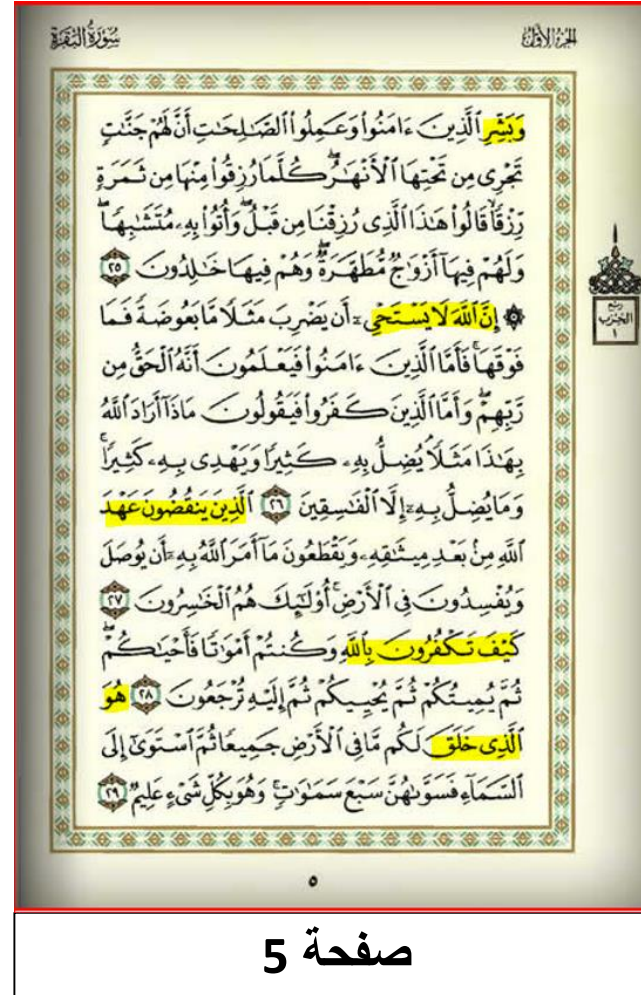 سُورَةُ البَقَرَةِ
الجُزْءُ الأَوَّلُ
وَبَشِّرِ ٱلَّذِينَ ءَامَنُوا۟ وَعَمِلُوا۟ ٱلصَّٰلِحَٰتِ أَنَّ لَهُمْ جَنَّٰتٍ
تَجْرِى مِن تَحْتِهَا ٱلْأَنْهَٰرُ ۖ كُلَّمَا رُزِقُوا۟ مِنْهَا مِن ثَمَرَةٍ
رِّزْقًا ۙ قَالُوا۟ هَٰذَا ٱلَّذِى رُزِقْنَا مِن قَبْلُ ۖ وَأُتُوا۟ بِهِۦ مُتَشَٰبِهًا ۖ
وَلَهُمْ فِيهَآ أَزْوَٰجٌ مُّطَهَّرَةٌ ۖ وَهُمْ فِيهَا خَٰلِدُونَ ٢٥
۞ إِنَّ ٱللَّهَ لَا يَسْتَحْىِۦٓ أَن يَضْرِبَ مَثَلًا مَّا بَعُوضَةً فَمَا
فَوْقَهَا ۚ فَأَمَّا ٱلَّذِينَ ءَامَنُوا۟ فَيَعْلَمُونَ أَنَّهُ ٱلْحَقُّ مِن
رَّبِّهِمْ ۖ وَأَمَّا ٱلَّذِينَ كَفَرُوا۟ فَيَقُولُونَ مَاذَآ أَرَادَ ٱللَّهُ
بِهَٰذَا مَثَلًا ۘ يُضِلُّ بِهِۦ كَثِيرًا وَيَهْدِى بِهِۦ كَثِيرًا ۚ
وَمَا يُضِلُّ بِهِۦٓ إِلَّا ٱلْفَٰسِقِينَ ٢٦ ٱلَّذِينَ يَنقُضُونَ عَهْدَ
ٱللَّهِ مِنۢ بَعْدِ مِيثَٰقِهِۦ وَيَقْطَعُونَ مَآ أَمَرَ ٱللَّهُ بِهِۦٓ أَن يُوصَلَ
وَيُفْسِدُونَ فِى ٱلْأَرْضِ ۚ أُو۟لَٰٓئِكَ هُمُ ٱلْخَٰسِرُونَ ٢٧
كَيْفَ تَكْفُرُونَ بِٱللَّهِ وَكُنتُمْ أَمْوَٰتًا فَأَحْيَٰكُمْ ۖ
ثُمَّ يُمِيتُكُمْ ثُمَّ يُحْيِيكُمْ ثُمَّ إِلَيْهِ تُرْجَعُونَ ٢٨ هُوَ
ٱلَّذِى خَلَقَ لَكُم مَّا فِى ٱلْأَرْضِ جَمِيعًا ثُمَّ ٱسْتَوَىٰٓ إِلَى
ٱلسَّمَآءِ فَسَوَّىٰهُنَّ سَبْعَ سَمَٰوَٰتٍ ۚ وَهُوَ بِكُلِّ شَىْءٍ عَلِيمٌ ٢٩
ربع
الحزب
١
٥
صفحة 5